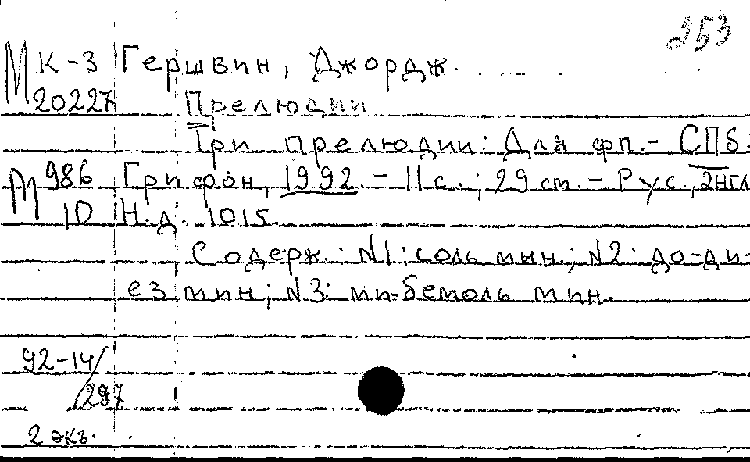 253
М К-3 Гершвин, Джордж.
20227 Прелюдии
Три прелюдии: Для фп.- СПб.
М 986 Грифон, 1992.- 11 с.; 29 см.- Рус., англ
10 Н.д. 1015
Содерж.: N1: соль мин; N2: до-ди-
ез мин; N3: ми-бемоль мин.
92-14/
297
2 экз.